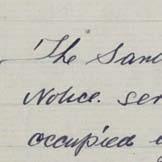 The San
Notice. ser
occupied